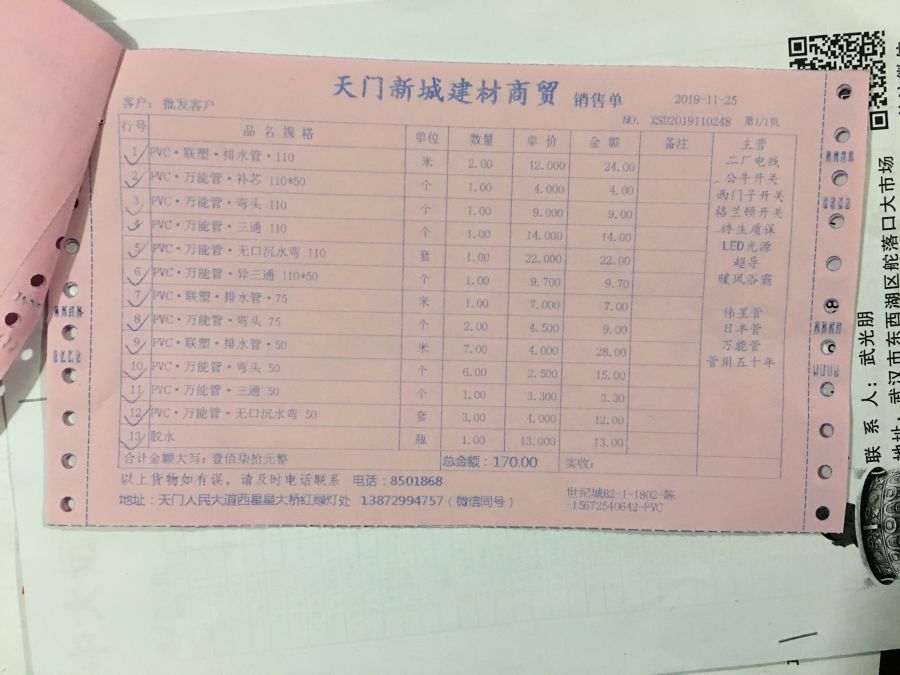 天门新城建材商贸 销售单 2019-11-25
客户：批发客户 NO. XSD2019110248 第1/1页
行号 品名规格 单位 数量 单价 金额 备注
1 PVC·联塑·排水管·110 米 2.00 12.000 24.00
2 PVC·万能管·补芯 110*50 个 1.00 4.000 4.00
3 PVC·万能管·弯头 110 个 1.00 9.000 9.00
4 PVC·万能管·三通 110 个 1.00 14.000 14.00
5 PVC·万能管·无口沉水弯 110 套 1.00 22.000 22.00
6 PVC·万能管·异三通 110*50 个 1.00 9.700 9.70
7 PVC·联塑·排水管·75 米 1.00 7.000 7.00
8 PVC·万能管·弯头 75 个 2.00 4.500 9.00
9 PVC·联塑·排水管·50 米 7.00 4.000 28.00
10 PVC·万能管·弯头 50 个 6.00 2.500 15.00
11 PVC·万能管·三通 50 个 1.00 3.300 3.30
12 PVC·万能管·无口沉水弯 50 套 3.00 4.000 12.00
13 胶水 瓶 1.00 13.000 13.00
合计金额大写：壹佰柒拾元整 总金额：170.00 实收：
以上货物如有误，请及时电话联系 电话：8501868
地址：天门人民大道西星星大桥红绿灯处 13872994757（微信同号）
世纪城B2-1-1802-陈
-15672540642-PVC
主营
二厂电线
公牛开关
西门子开关
格兰顿开关
终生质保
LED光源
超导
暖风浴霸
伟星管
日丰管
万能管
管用五十年
联系人：武光朋
地址：武汉市东西湖区舵落口大市场